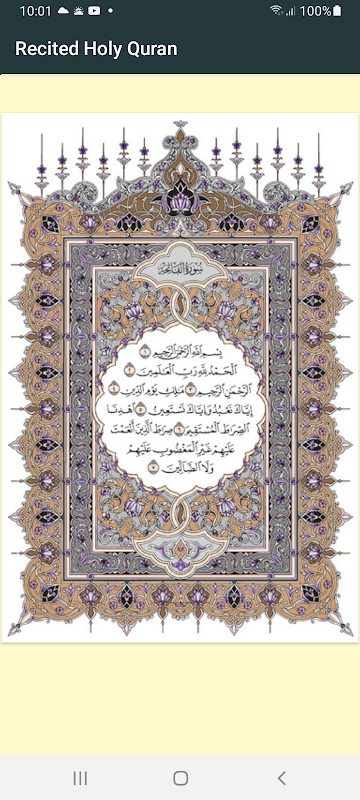 10:01
100%
Recited Holy Quran
سُورَةُ الفَاتِحَة
بِسْمِ اللَّهِ الرَّحْمَٰنِ الرَّحِيمِ ١
الْحَمْدُ لِلَّهِ رَبِّ الْعَالَمِينَ ٢
الرَّحْمَٰنِ الرَّحِيمِ ٣ مَالِكِ يَوْمِ الدِّينِ ٤
إِيَّاكَ نَعْبُدُ وَإِيَّاكَ نَسْتَعِينُ ٥ اهْدِنَا
الصِّرَاطَ الْمُسْتَقِيمَ ٦ صِرَاطَ الَّذِينَ أَنْعَمْتَ
عَلَيْهِمْ غَيْرِ الْمَغْضُوبِ عَلَيْهِمْ
وَلَا الضَّالِّينَ ٧